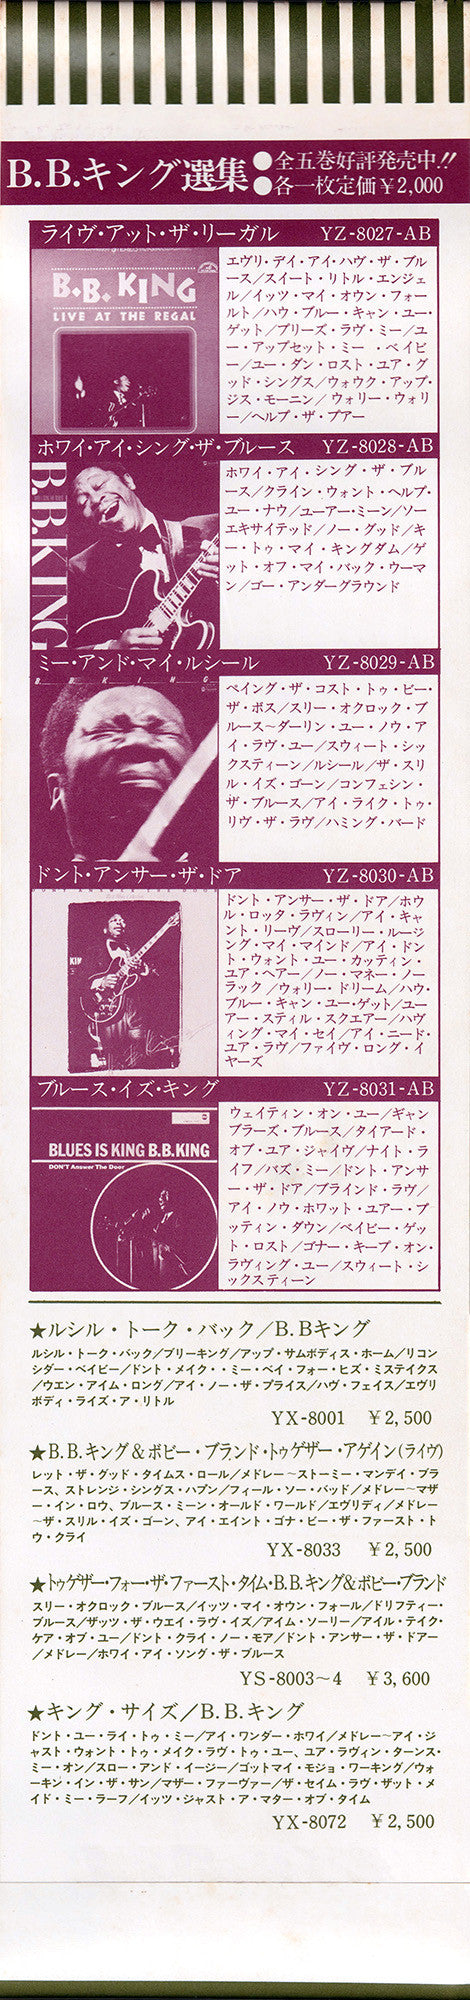 B.B.キング選集
●全五巻好評発売中!!
●各一枚定価￥2,000
ライヴ・アット・ザ・リーガル YZ-8027-AB
B.B. KING
LIVE AT THE REGAL
エヴリ・デイ・アイ・ハヴ・ザ・ブル
ース/スイート・リトル・エンジェ
ル/イッツ・マイ・オウン・フォー
ルト/ハウ・ブルー・キャン・ユー・
ゲット/プリーズ・ラヴ・ミー/ユ
ー・アップセット・ミー・ベイビ
ー/ユー・ダン・ロスト・ユア・グ
ッド・シングス/ウォウク・アップ・
ジス・モーニン/ウォリー・ウォリ
ー/ヘルプ・ザ・プアー
ホワイ・アイ・シング・ザ・ブルース YZ-8028-AB
B.B.KING
ホワイ・アイ・シング・ザ・ブル
ース/クライン・ウォント・ヘルプ・
ユー・ナウ/ユーアー・ミーン/ソー
エキサイテッド/ノー・グッド/キ
ー・トゥ・マイ・キングダム/ゲ
ット・オフ・マイ・バック・ウーマ
ン/ゴー・アンダーグラウンド
ミー・アンド・マイ・ルシール YZ-8029-AB
B. B. KING
ペイング・ザ・コスト・トゥ・ビー・
ザ・ボス/スリー・オクロック・ブ
ルース～ダーリン・ユー・ノウ・ア
イ・ラヴ・ユー/スウィート・シッ
クスティーン/ルシール/ザ・スリ
ル・イズ・ゴーン/コンフェシン・
ザ・ブルース/アイ・ライク・トゥ・
リヴ・ザ・ラヴ/ハミング・バード
ドント・アンサー・ザ・ドア YZ-8030-AB
DON'T ANSWER THE DOOR
ドント・アンサー・ザ・ドア/ホウ
ル・ロッタ・ラヴィン/アイ・キャ
ント・リーヴ/スローリー・ルージ
ング・マイ・マインド/アイ・ドン
ト・ウォント・ユー・カッティン・
ユア・ヘアー/ノー・マネー・ノー
ラック/ウォリー・ドリーム/ハウ・
ブルー・キャン・ユー・ゲット/ユー
アー・スティル・スクエアー/ハヴ
ィング・マイ・セイ/アイ・ニード・
ユア・ラヴ/ファイヴ・ロング・イ
ヤーズ
ブルース・イズ・キング YZ-8031-AB
BLUES IS KING B.B.KING
DON'T Answer The Door
ウェイティン・オン・ユー/ギャン
ブラーズ・ブルース/タイアード・
オブ・ユア・ジャイヴ/ナイト・ラ
イフ/バズ・ミー/ドント・アンサ
ー・ザ・ドア/ブラインド・ラヴ/
アイ・ノウ・ホワット・ユアー・プ
ッティン・ダウン/ベイビー・ゲッ
ト・ロスト/ゴナー・キープ・オン・
ラヴィング・ユー/スウィート・シ
ックスティーン
★ルシル・トーク・バック/B.Bキング
ルシル・トーク・バック/ブリーキング/アップ・サムボディス・ホーム/リコン
シダー・ベイビー/ドント・メイク・・ミー・ペイ・フォー・ヒズ・ミステイクス
/ウエン・アイム・ロング/アイ・ノー・ザ・プライス/ハヴ・フェイス/エヴリ
ボディ・ライズ・ア・リトル
YX-8001 ￥2,500
★B.B.キング&ボビー・ブランド・トゥゲザー・アゲイン(ライヴ)
レット・ザ・グッド・タイムス・ロール/メドレー～ストーミー・マンデイ・ブラ
ース、ストレンジ・シングス・ハプン/フィール・ソー・バッド/メドレー～マザ
ー・イン・ロウ、ブルース・ミーン・オールド・ワールド/エヴリディ/メドレー
～ザ・スリル・イズ・ゴーン、アイ・エイント・ゴナ・ビー・ザ・ファースト・ト
ウ・クライ
YX-8033 ￥2,500
★トゥゲザー・フォー・ザ・ファースト・タイム・B.B.キング&ボビー・ブランド
スリー・オクロック・ブルース/イッツ・マイ・オウン・フォール/ドリフティー・
ブルース/ザッツ・ザ・ウエイ・ラヴ・イズ/アイム・ソーリー/アイル・テイク・
ケア・オブ・ユー/ドント・クライ・ノー・モア/ドント・アンサー・ザ・ドアー
/メドレー/ホワイ・アイ・ソング・ザ・ブルース
YS-8003～4 ￥3,600
★キング・サイズ/B.B.キング
ドント・ユー・ライ・トゥ・ミー/アイ・ワンダー・ホワイ/メドレー～アイ・ジ
ャスト・ウォント・トゥ・メイク・ラヴ・トゥ・ユー、ユア・ラヴィン・ターンス・
ミー・オン/スロー・アンド・イージー/ゴットマイ・モジョ・ワーキング/ウォ
ーキン・イン・ザ・サン/マザー・ファーヴァー/ザ・セイム・ラヴ・ザット・メ
イド・ミー・ラーフ/イッツ・ジャスト・ア・マター・オブ・タイム
YX-8072 ￥2,500